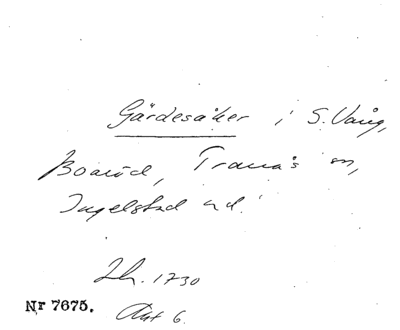 Gärdesåker i S. Vång,
Boaröd, Tranås sn,
Ingelstad hd.
Lh. 1730
Akt 6.
Nr 7675.